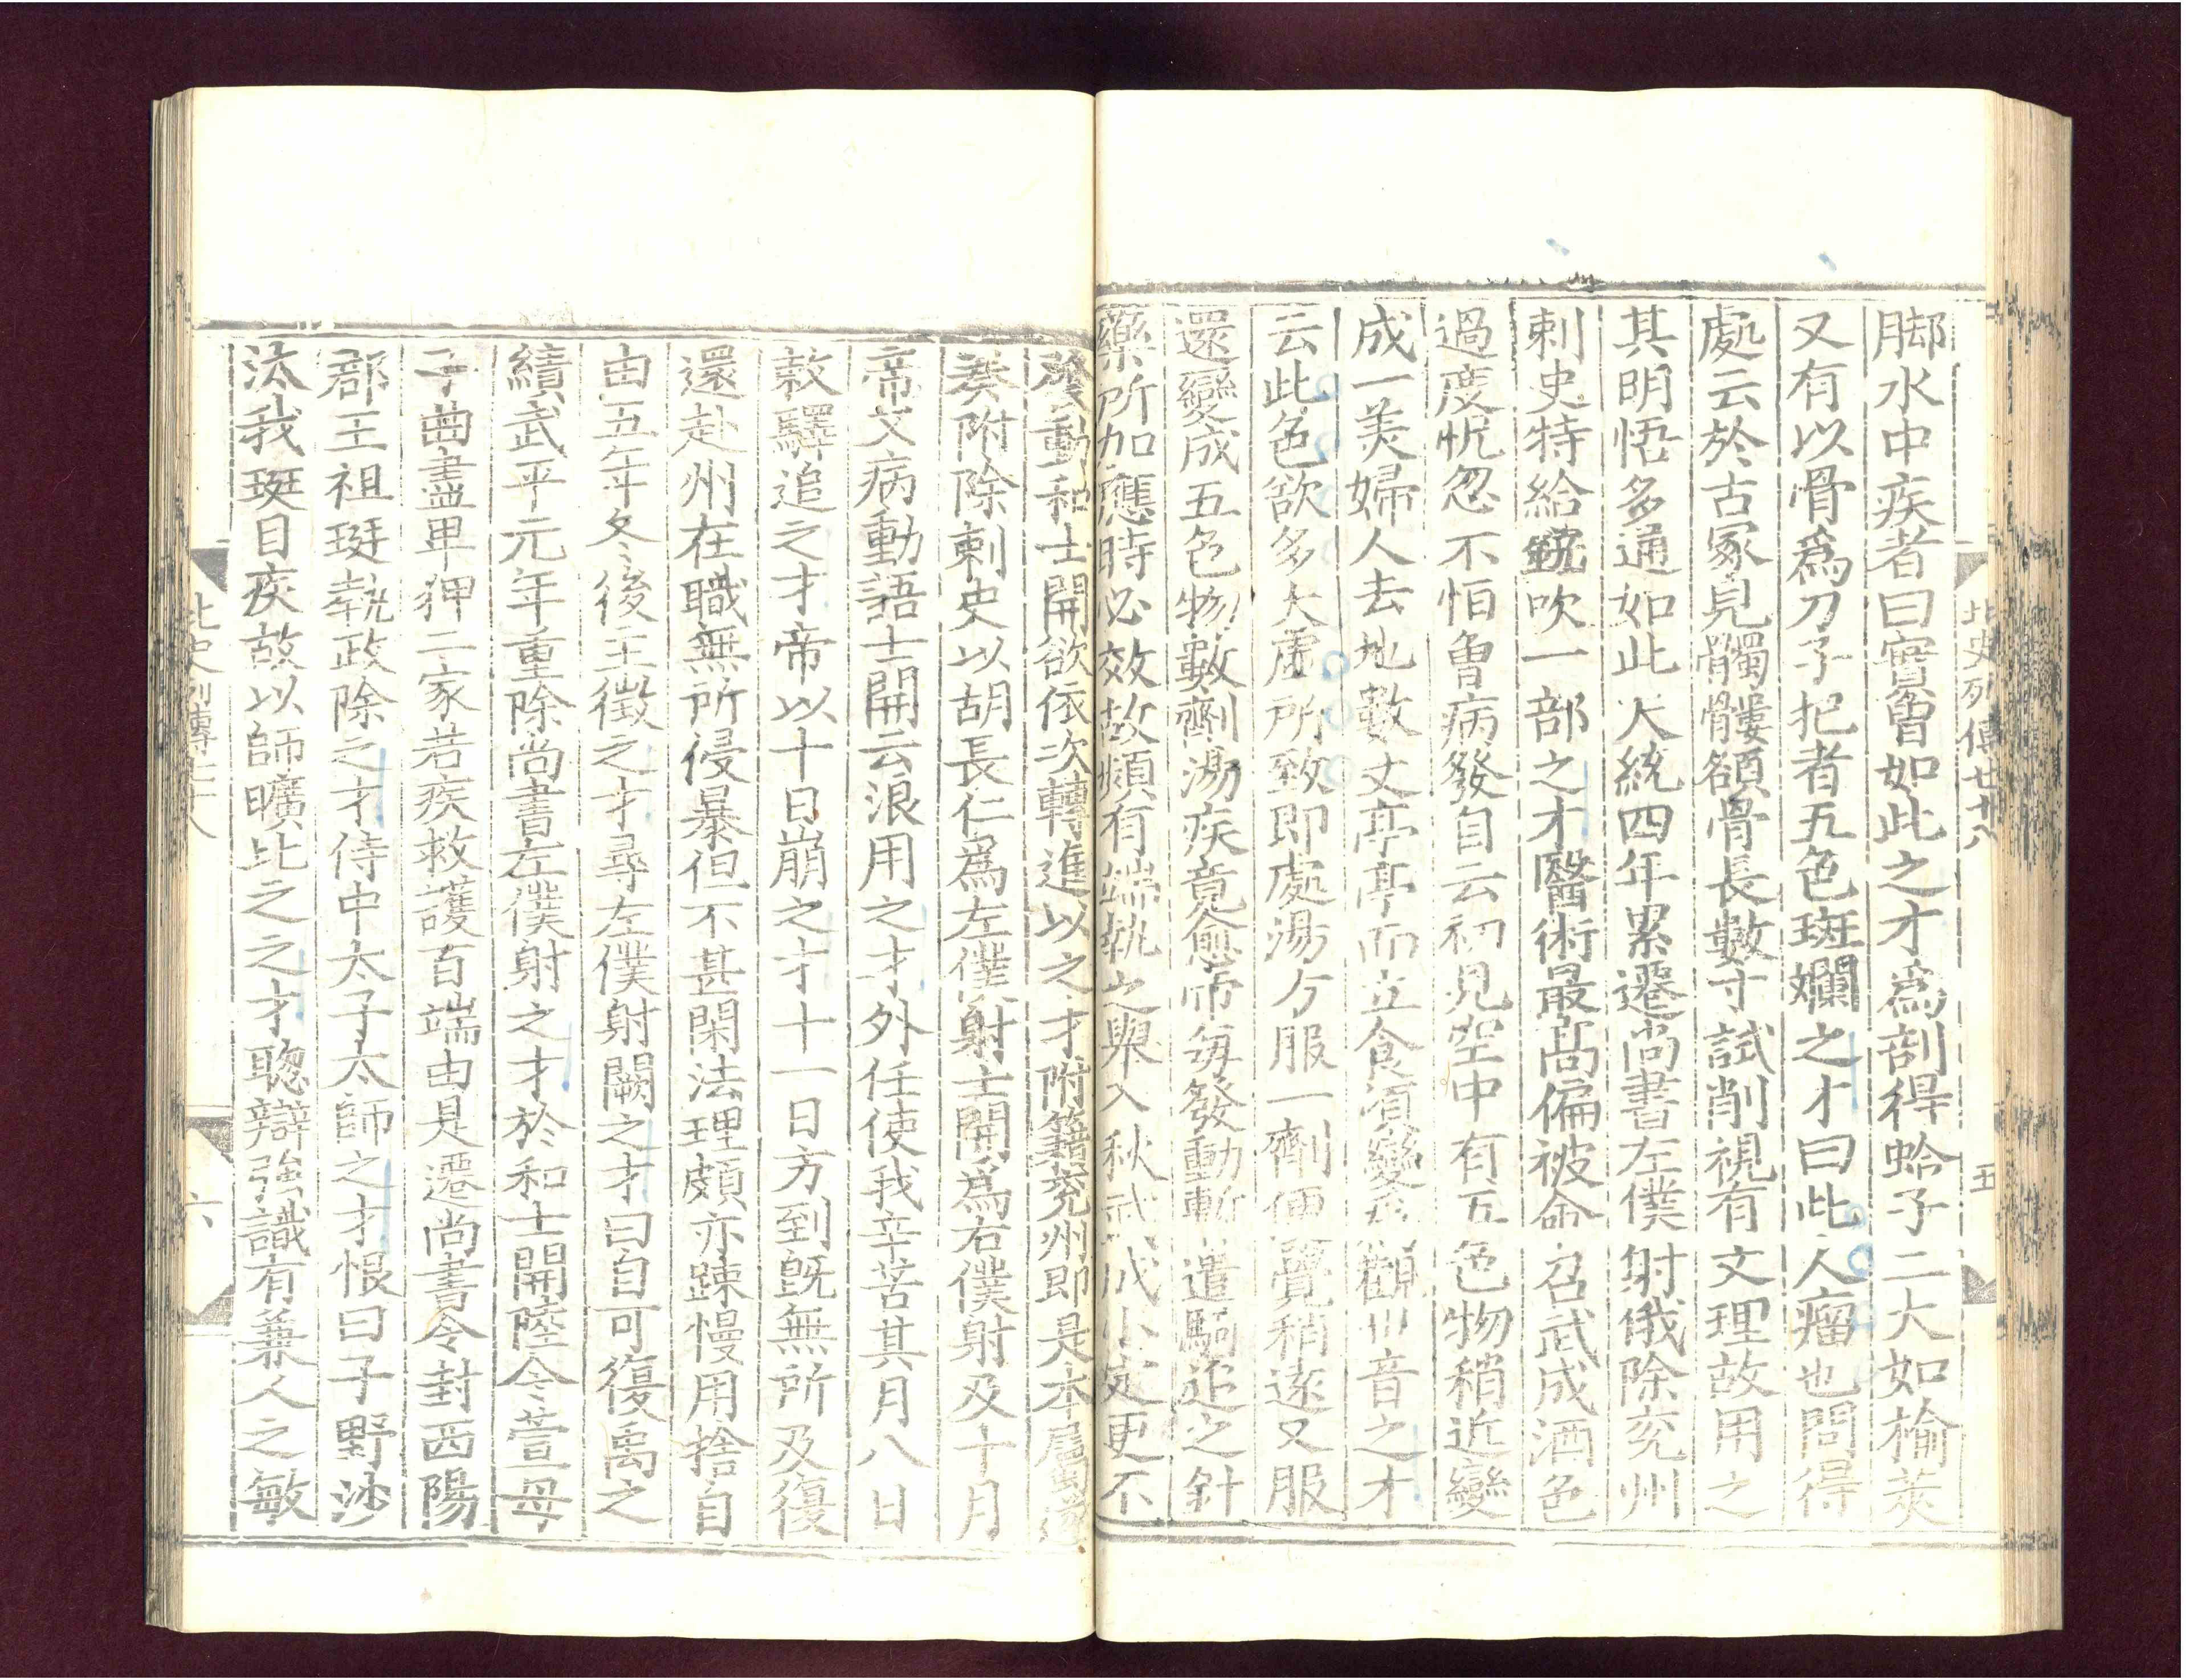 北史列傳廿十八
五
脚水中疾者曰實曾如此之才爲剖得蛤子二大如楡莢
又有以骨爲刀子把者五色斑斕之才曰此人瘤也問得
處云於古冢見髑髏額骨長數寸試削視有文理故用之
其明悟多通如此大統四年累遷尚書左僕射俄除兖州
刺史特給鐃吹一部之才醫術最高偏被命召武成酒色
過度怳忽不恒曾病發自云初見空中有五色物稍近變
成一美婦人去地數丈亭亭而立食頃變爲觀世音之才
云此色欲多大虛所致即處湯方服一劑便覺稍遠又服
還變成五色物數劑湯疾竟愈帝每發動暫遣騎追之針
藥所加應時必效故頻有端執之舉入秋武成小定更不
發動和士開欲依次轉進以之才附籍兖州即是本屬遂
奏附除刺史以胡長仁爲左僕射士開爲右僕射及十月
帝又病動語士開云浪用之才外任使我辛苦其月八日
敕驛追之才帝以十日崩之才十一日方到旣無所及復
還赴州在職無所侵暴但不甚閑法理頗亦疎慢用捨自
由五年冬後主徵之才尋左僕射闕之才曰自可復禹之
績武平元年重除尚書左僕射之才於和士開陸令萱母
子曲盡卑狎二家若疾救護百端由是遷尚書令封西陽
郡王祖珽執政除之才侍中太子太師之才恨曰子野沙
汰我珽目疾故以師曠比之之才聰辯強識有兼人之敏
北史列傳七十八
六